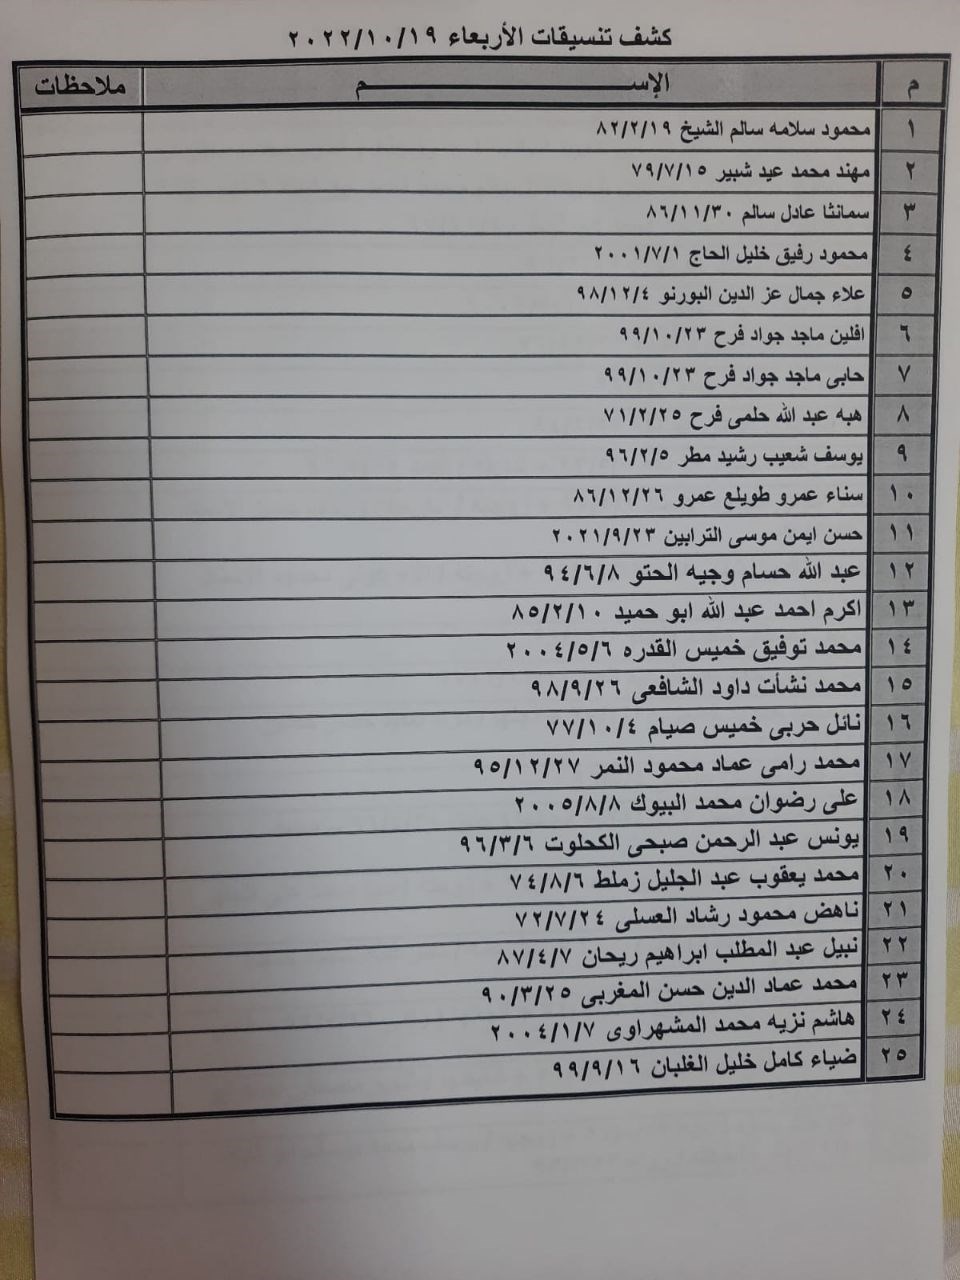 كشف تنسيقات الأربعاء ٢٠٢٢/١٠/١٩
م الإســـــــــــــــــــــم ملاحظات
١ محمود سلامه سالم الشيخ ٨٢/٢/١٩
٢ مهند محمد عيد شبير ٧٩/٧/١٥
٣ سمانثا عادل سالم ٨٦/١١/٣٠
٤ محمود رفيق خليل الحاج ٢٠٠١/٧/١
٥ علاء جمال عز الدين البورنو ٩٨/١٢/٤
٦ افلين ماجد جواد فرح ٩٩/١٠/٢٣
٧ حابى ماجد جواد فرح ٩٩/١٠/٢٣
٨ هبه عبد الله حلمى فرح ٧١/٢/٢٥
٩ يوسف شعيب رشيد مطر ٩٦/٢/٥
١٠ سناء عمرو طويلع عمرو ٨٦/١٢/٢٦
١١ حسن ايمن موسى الترابين ٢٠٢١/٩/٢٣
١٢ عبد الله حسام وجيه الحتو ٩٤/٦/٨
١٣ اكرم احمد عبد الله ابو حميد ٨٥/٢/١٠
١٤ محمد توفيق خميس القدره ٢٠٠٤/٥/٦
١٥ محمد نشأت داود الشافعى ٩٨/٩/٢٦
١٦ نائل حربى خميس صيام ٧٧/١٠/٤
١٧ محمد رامى عماد محمود النمر ٩٥/١٢/٢٧
١٨ على رضوان محمد البيوك ٢٠٠٥/٨/٨
١٩ يونس عبد الرحمن صبحى الكحلوت ٩٦/٣/٦
٢٠ محمد يعقوب عبد الجليل زملط ٧٤/٨/٦
٢١ ناهض محمود رشاد العسلى ٧٢/٧/٢٤
٢٢ نبيل عبد المطلب ابراهيم ريحان ٨٧/٤/٧
٢٣ محمد عماد الدين حسن المغربى ٩٠/٣/٢٥
٢٤ هاشم نزيه محمد المشهراوى ٢٠٠٤/١/٧
٢٥ ضياء كامل خليل الغلبان ٩٩/٩/١٦